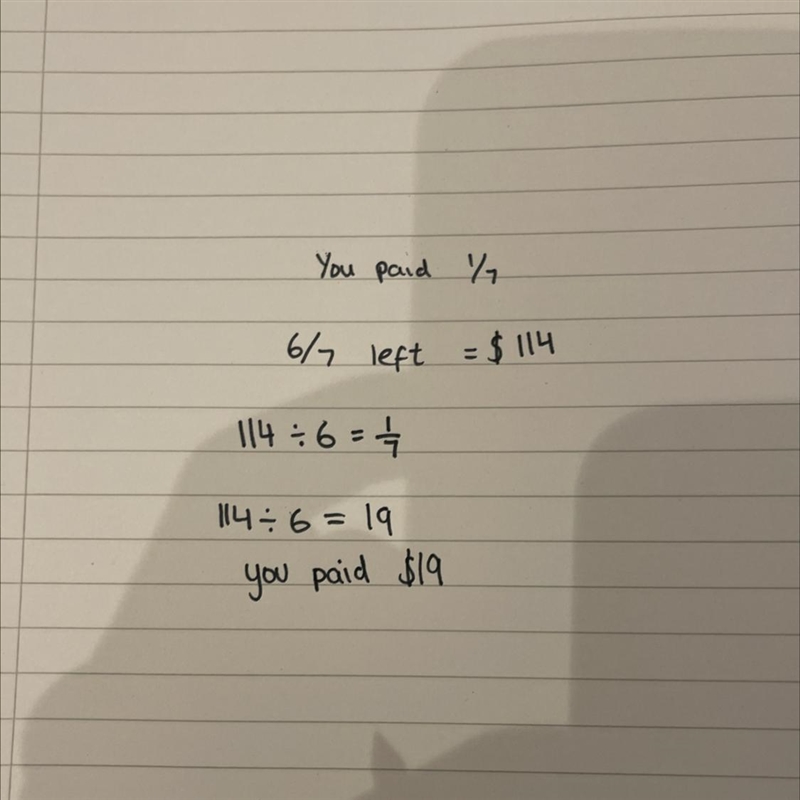 You paid 1/7
6/7 left = $ 114
114 ÷ 6 = 1/7
114 ÷ 6 = 19
you paid $19